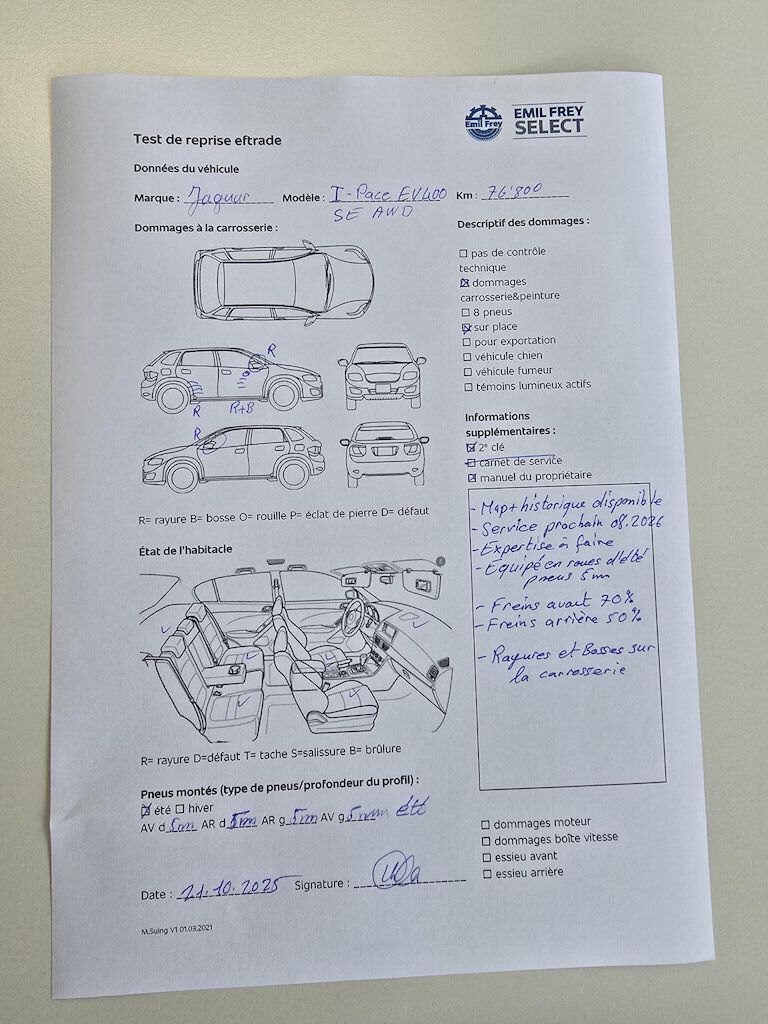 Emil Frey
EMIL FREY
SELECT
Test de reprise eftrade
Données du véhicule
Marque : Jaguar Modèle : I-Pace EV400 Km : 76'800
SE AWD
Dommages à la carrosserie :
Descriptif des dommages :
pas de contrôle
technique
dommages
carrosserie&peinture
8 pneus
sur place
pour exportation
véhicule chien
véhicule fumeur
témoins lumineux actifs
R
R
R+B
R
R= rayure B= bosse O= rouille P= éclat de pierre D= défaut
Informations
supplémentaires :
2e clé
carnet de service
manuel du propriétaire
- Map + historique disponible
- Service prochain 08.2026
- Expertise à faire
- Equipé en roues d'été
pneus 5m
- Freins avant 70%
- Freins arrière 50%
- Rayures et Bosses sur
la carrosserie
État de l'habitacle
R= rayure D=défaut T= tache S=salissure B= brûlure
Pneus montés (type de pneus/profondeur du profil) :
été hiver
AV d 5m AR d 5m AR g 5m AV g 5mm été
dommages moteur
dommages boîte vitesse
essieu avant
essieu arrière
Date : 21.10.2025 Signature :
M.Suing V1 01.03.2021